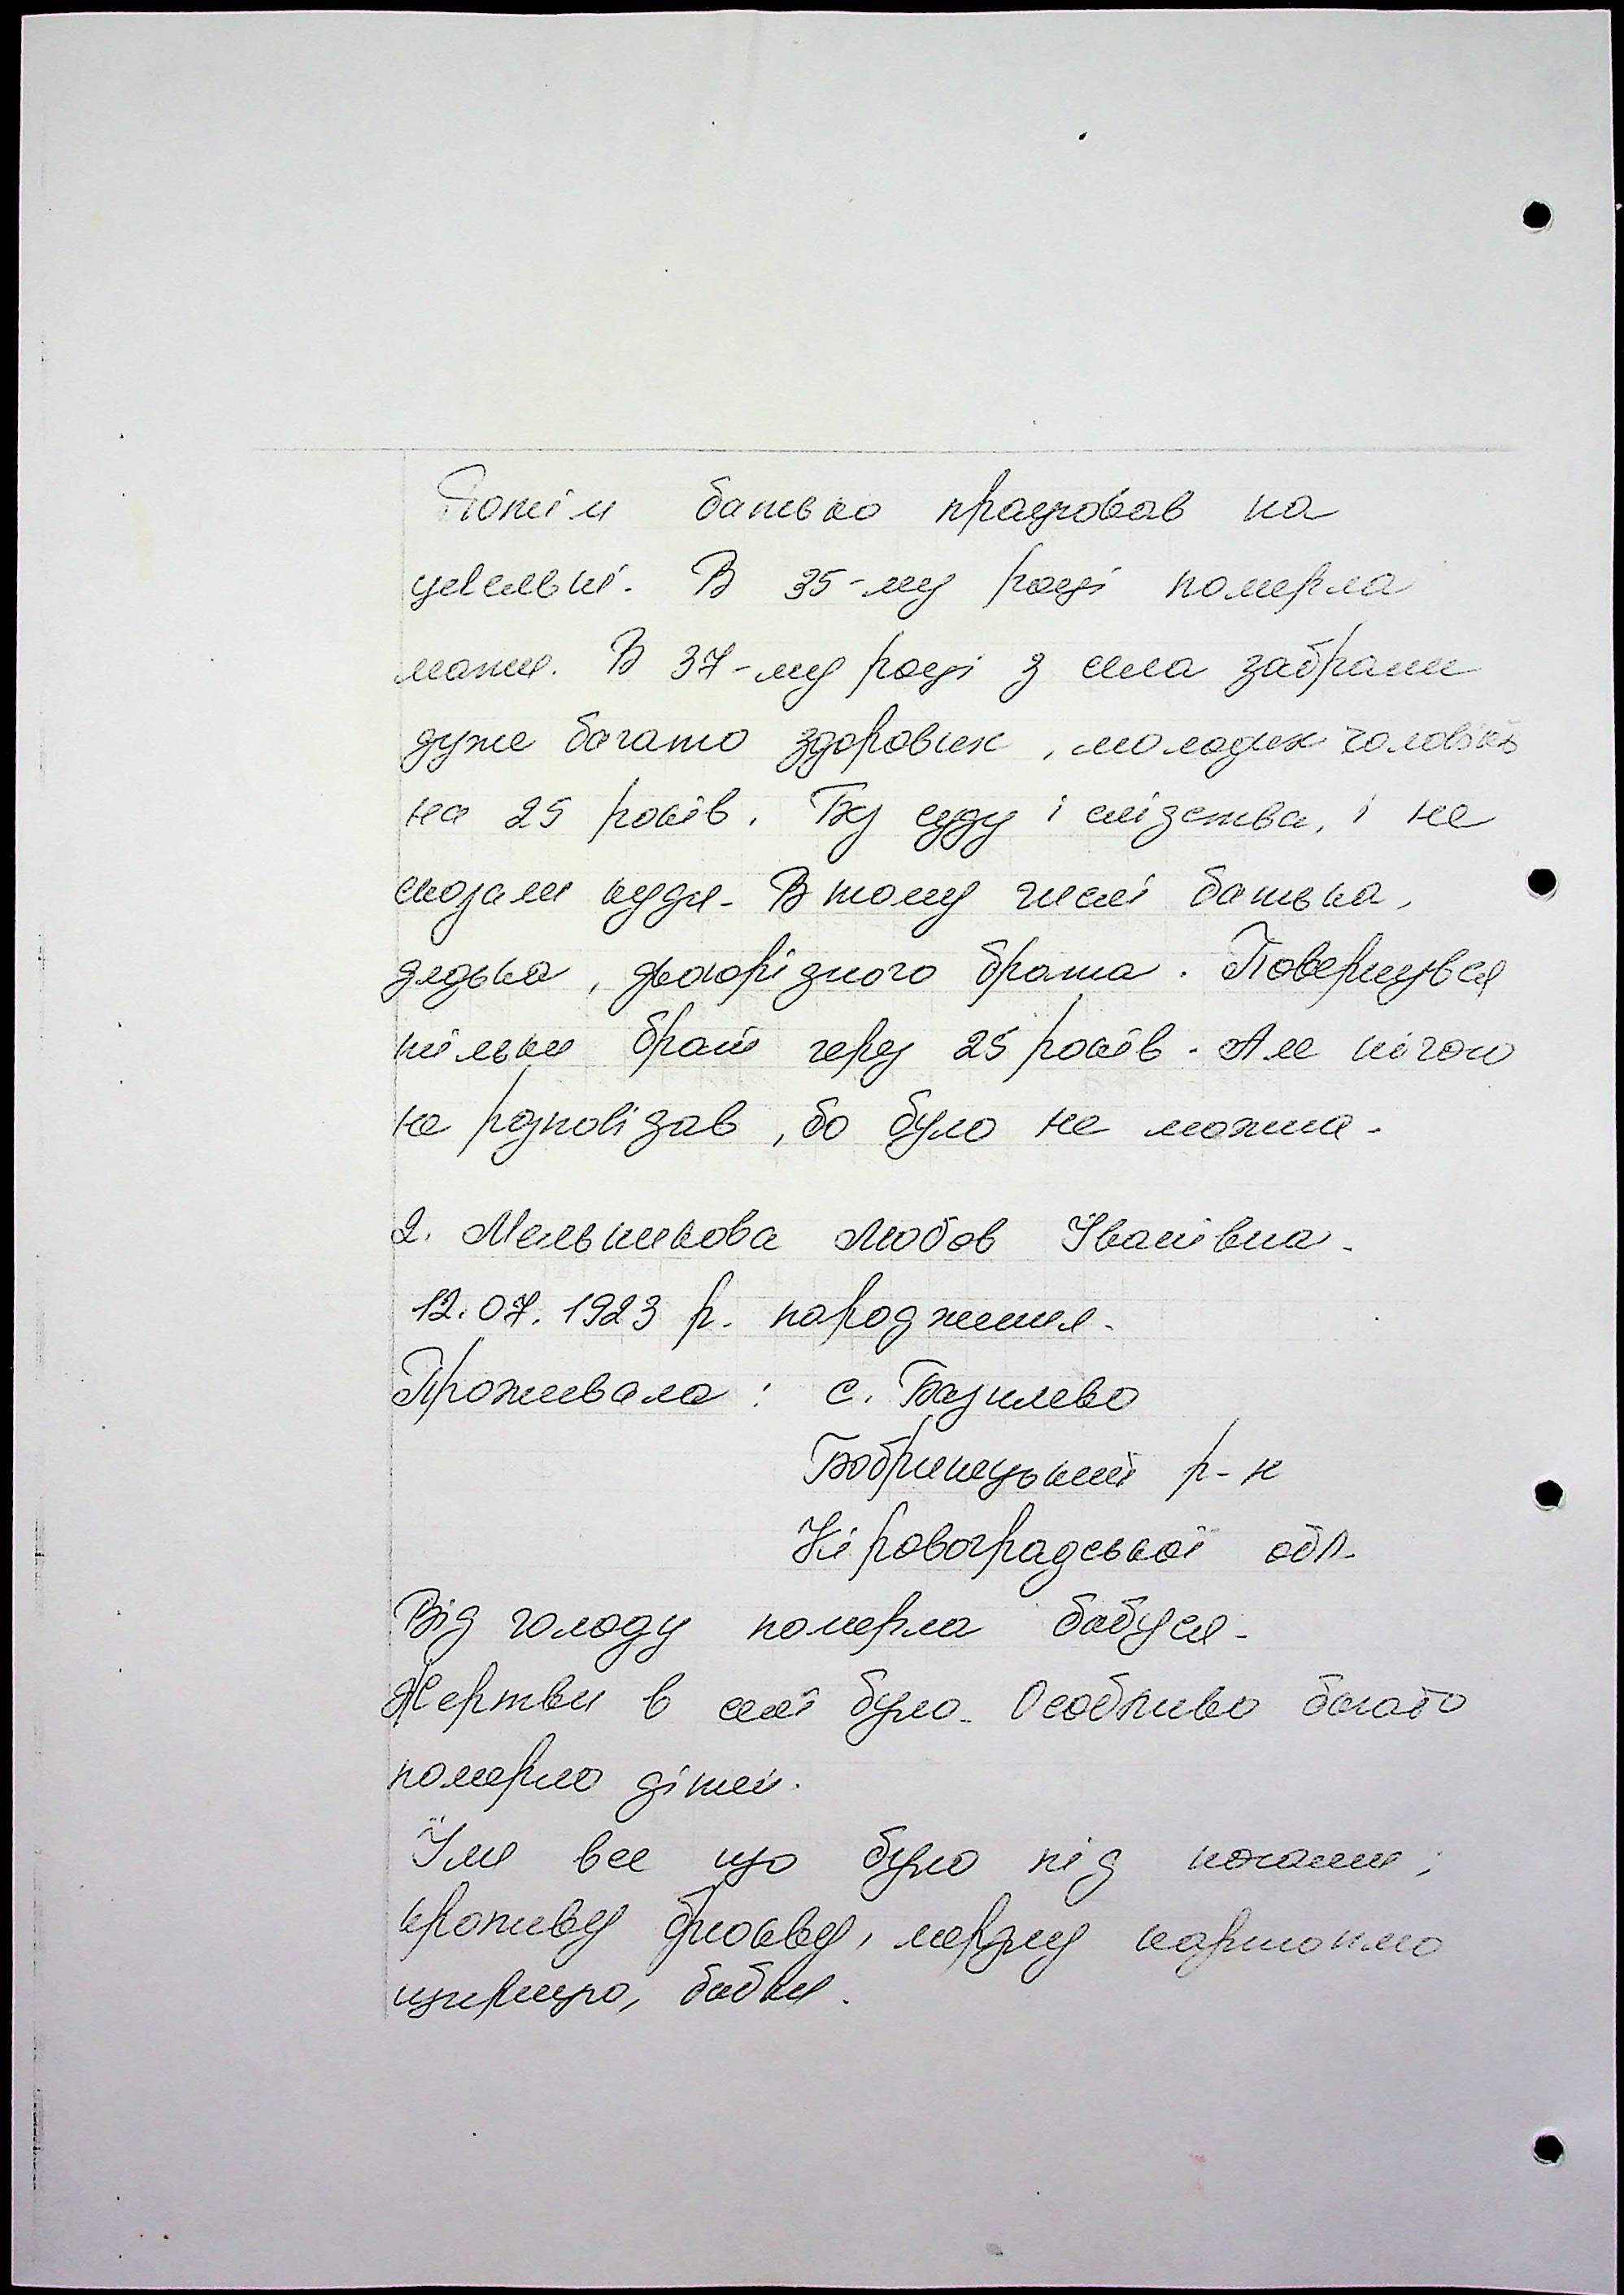 Потім батько працював на
цегельні. В 35-му році померла
мати. В 37-му році з села забрали
дуже багато здорових, молодих чоловіків
на 25 років. Без суду і слідства, і не
сказали куди. В тому числі батька,
дядька, двоюрідного брата. Повернувся
тільки брат через 25 років. Але нічого
не розповідав, бо було не можна.
2. Мельникова Любов Іванівна.
12.07.1923 р. народження.
Проживала: с. Базилево
Бобринецький р-н
Кіровоградської обл.
Від голоду померла бабуся.
Жертви в селі було. Особливо багато
померло дітей.
Їли все що було під ногами;
кропиву, мерзлу картоплю
щирицю, бабки.